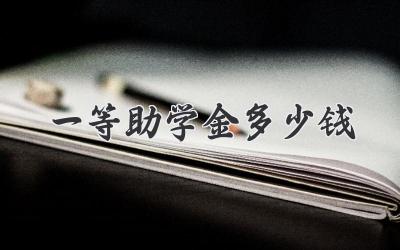 一等助学金多少钱